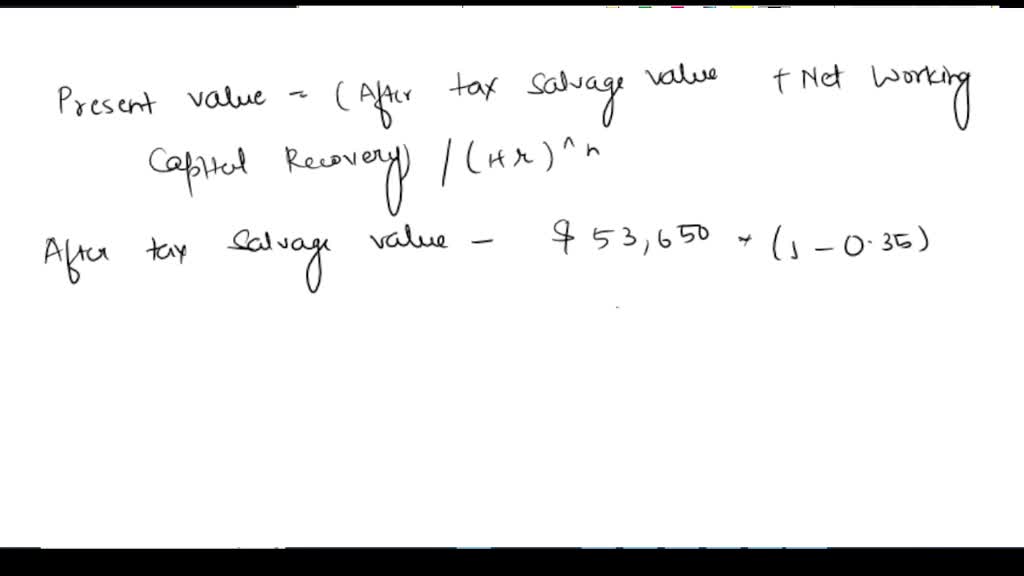 Present value = (After tax salvage value + Net Working
Capital Recovery) / (1+r)^n
After tax salvage value - $ 53,650 * (1 - 0.35)